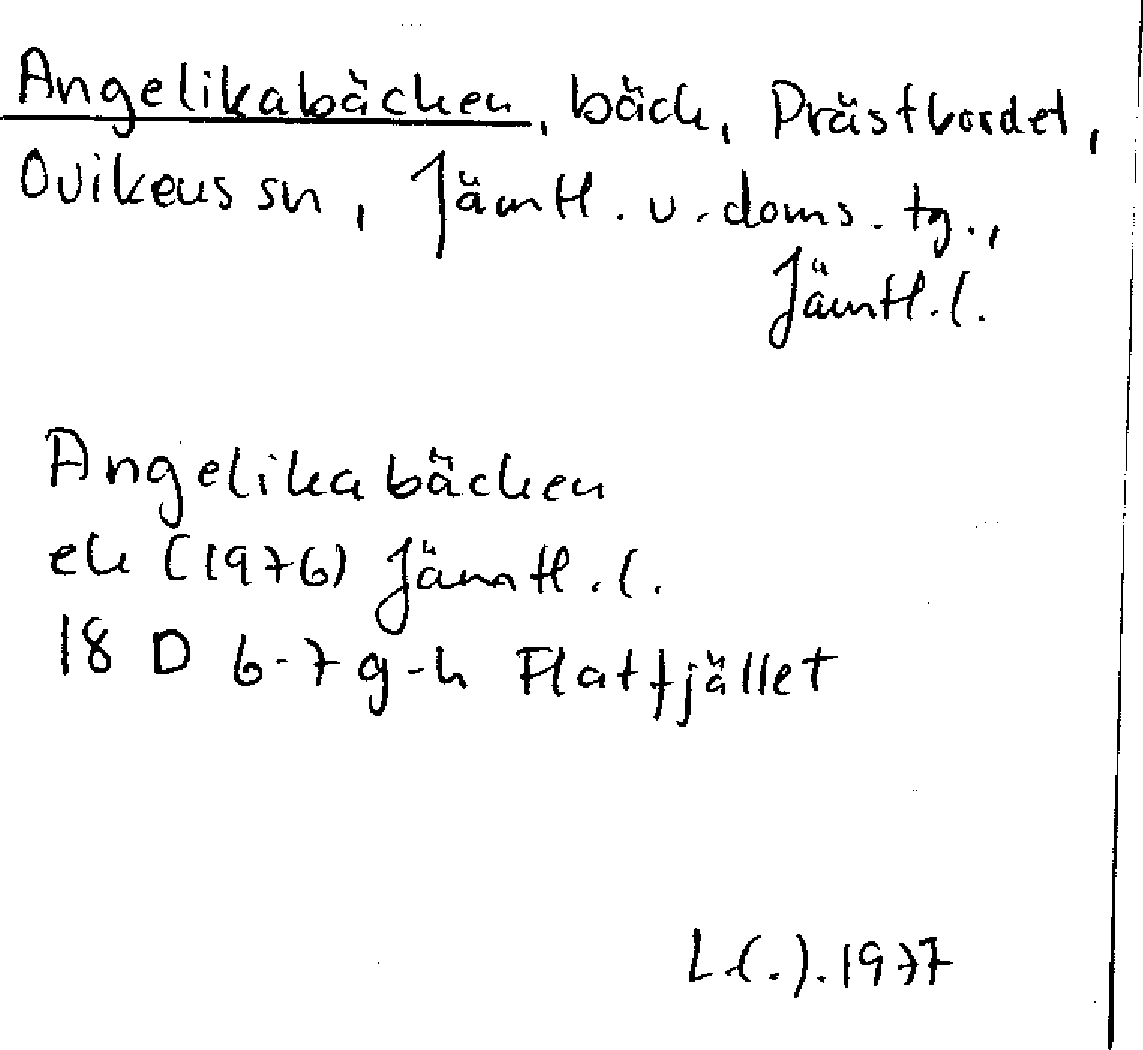 Angelikabäcken, bäck, Prästbordet,
Ovikens sn, Jämtl. v. doms. tg.,
Jämtl. l.
Angelikabäcken
ek (1976) Jämtl. l.
18 D 6-7 g-h Flatfjället
1977